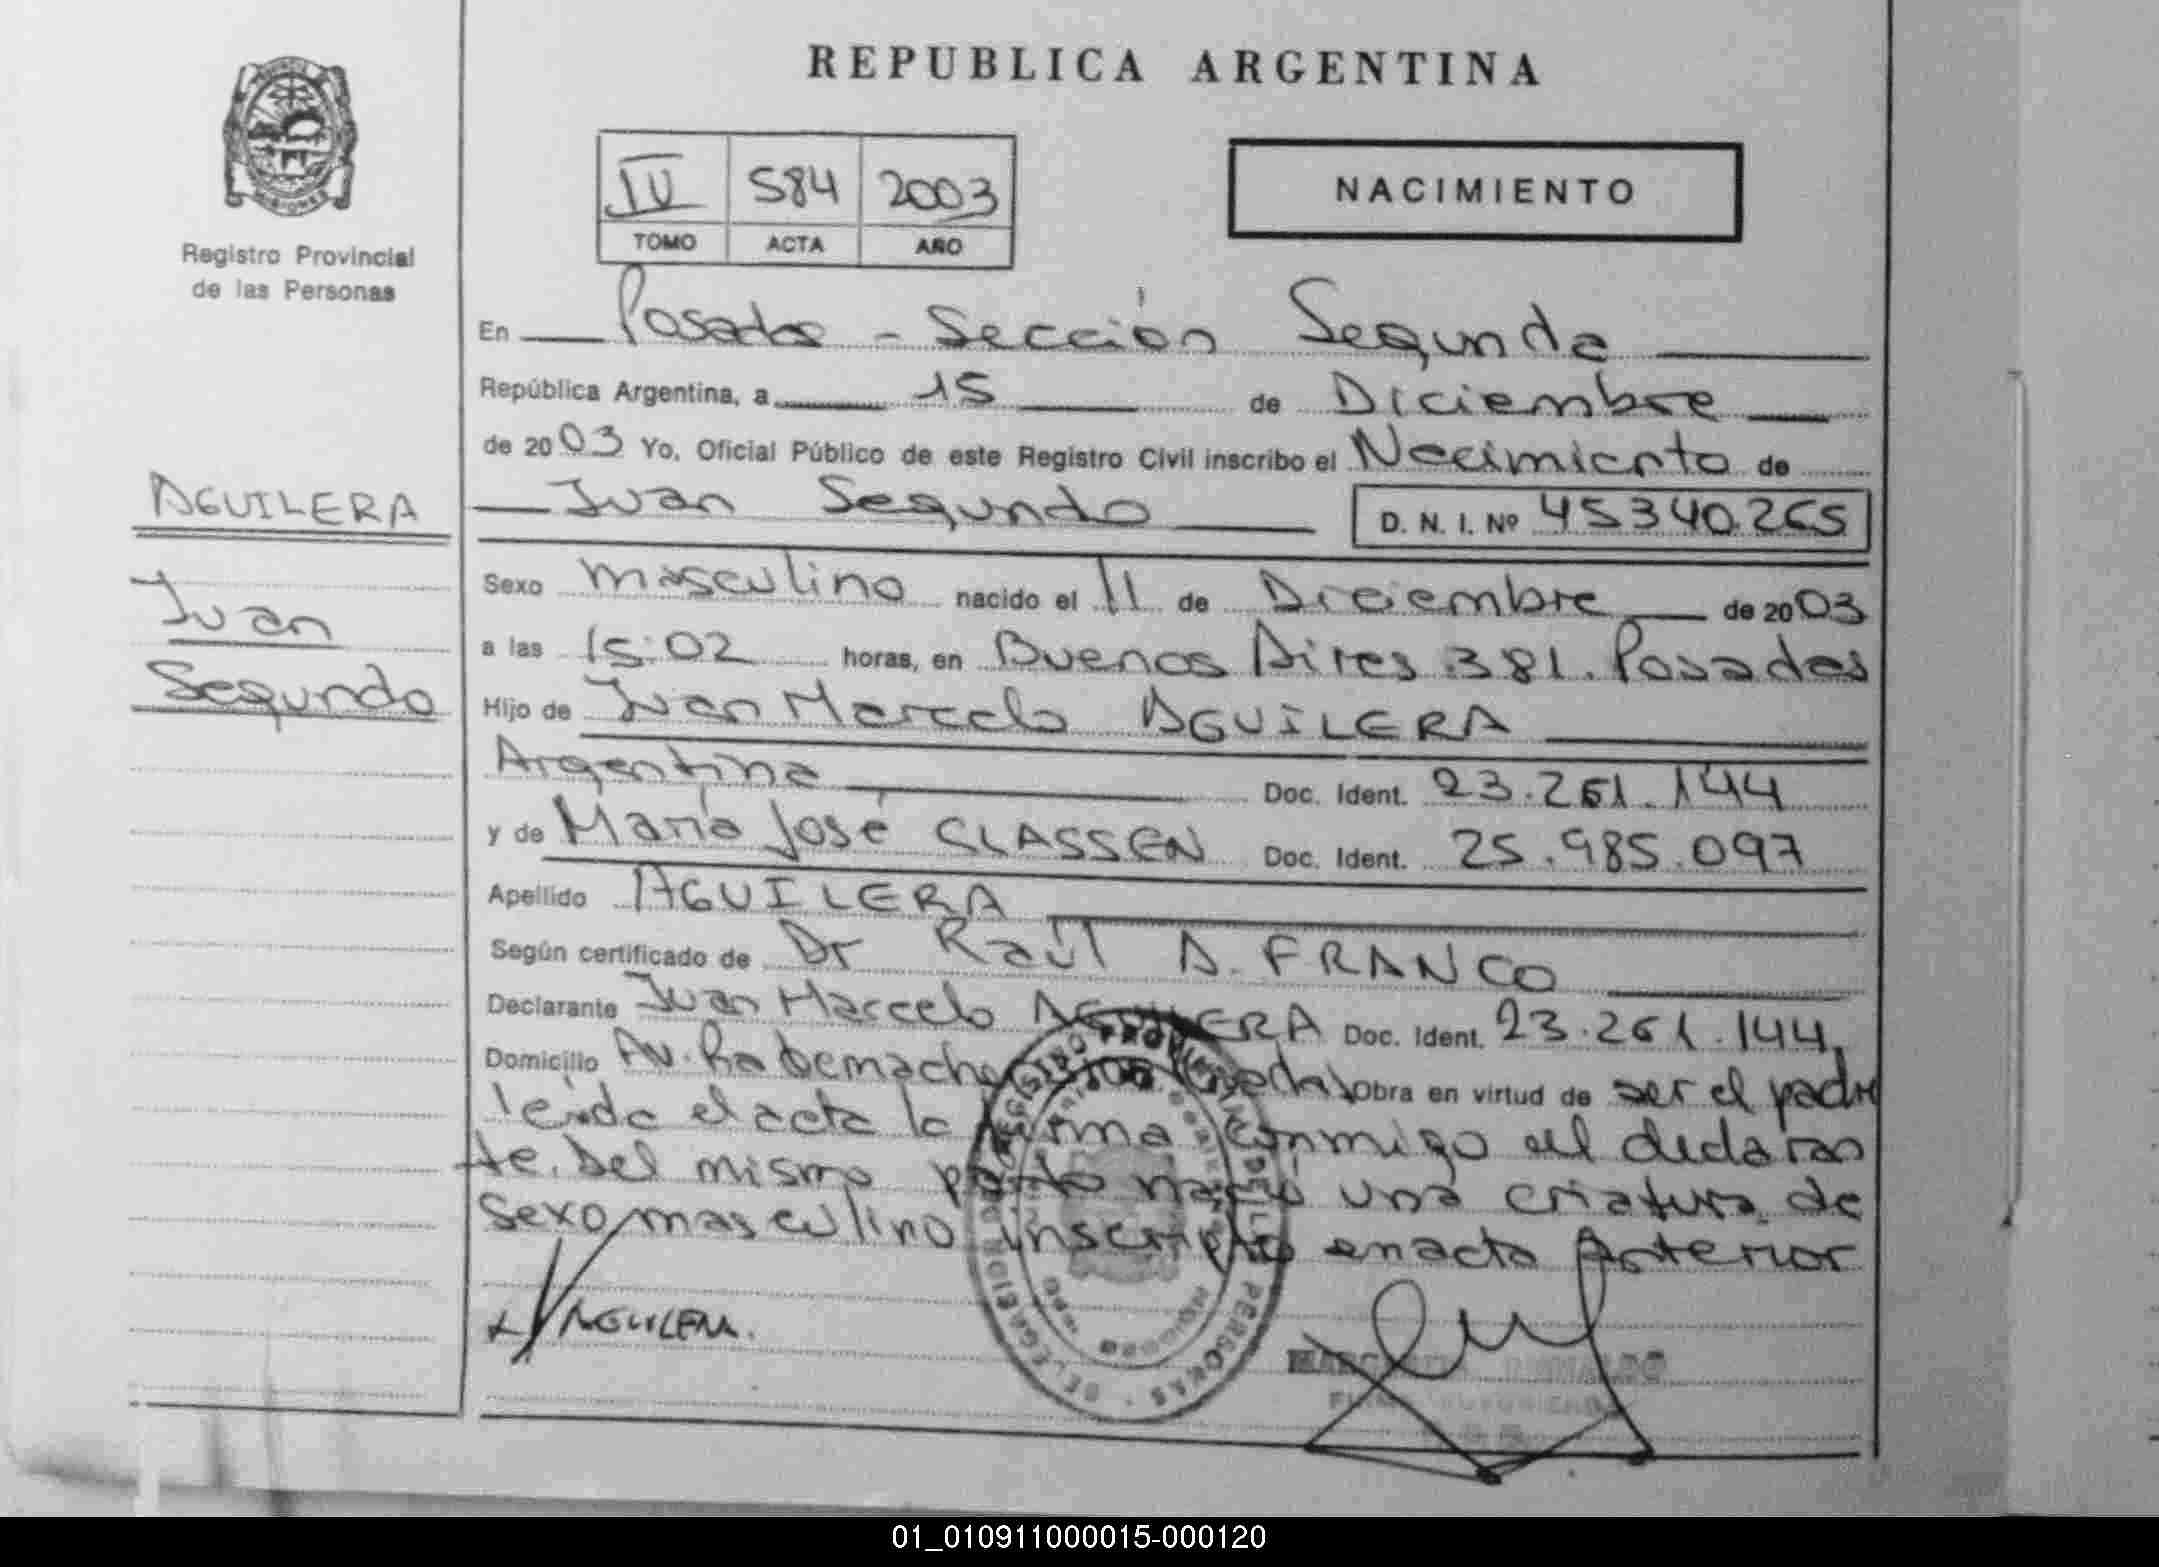 REPUBLICA ARGENTINA
MISIONES
Registro Provincial
de las Personas
IV 584 2003
TOMO ACTA AÑO
NACIMIENTO
En Posadas - Sección Segunda
República Argentina, a 15 de Diciembre
de 2003 Yo, Oficial Público de este Registro Civil inscribo el Nacimiento de
Juan Segundo D. N. I. Nº 45340.265
AGUILERA
Juan
Segundo
Sexo masculino nacido el 11 de Diciembre de 2003
a las 15:02 horas, en Buenos Aires 381. Posadas
Hijo de Juan Marcelo AGUILERA
Argentina Doc. Ident. 23.261.144
y de María José CLASSEN Doc. Ident. 25.985.097
Apellido AGUILERA
Según certificado de Dr Raúl A. FRANCO
Declarante Juan Marcelo AGUILERA Doc. Ident. 23.261.144
Domicilio Av. Obra en virtud de ser el padre
leida el acta la firma conmigo el declaran
te. Del mismo parto nació una criatura de
sexo masculino inscripto en acta Anterior
AGUILERA.
REGISTRO PROVINCIAL DE LAS PERSONAS
01_010911000015-000120